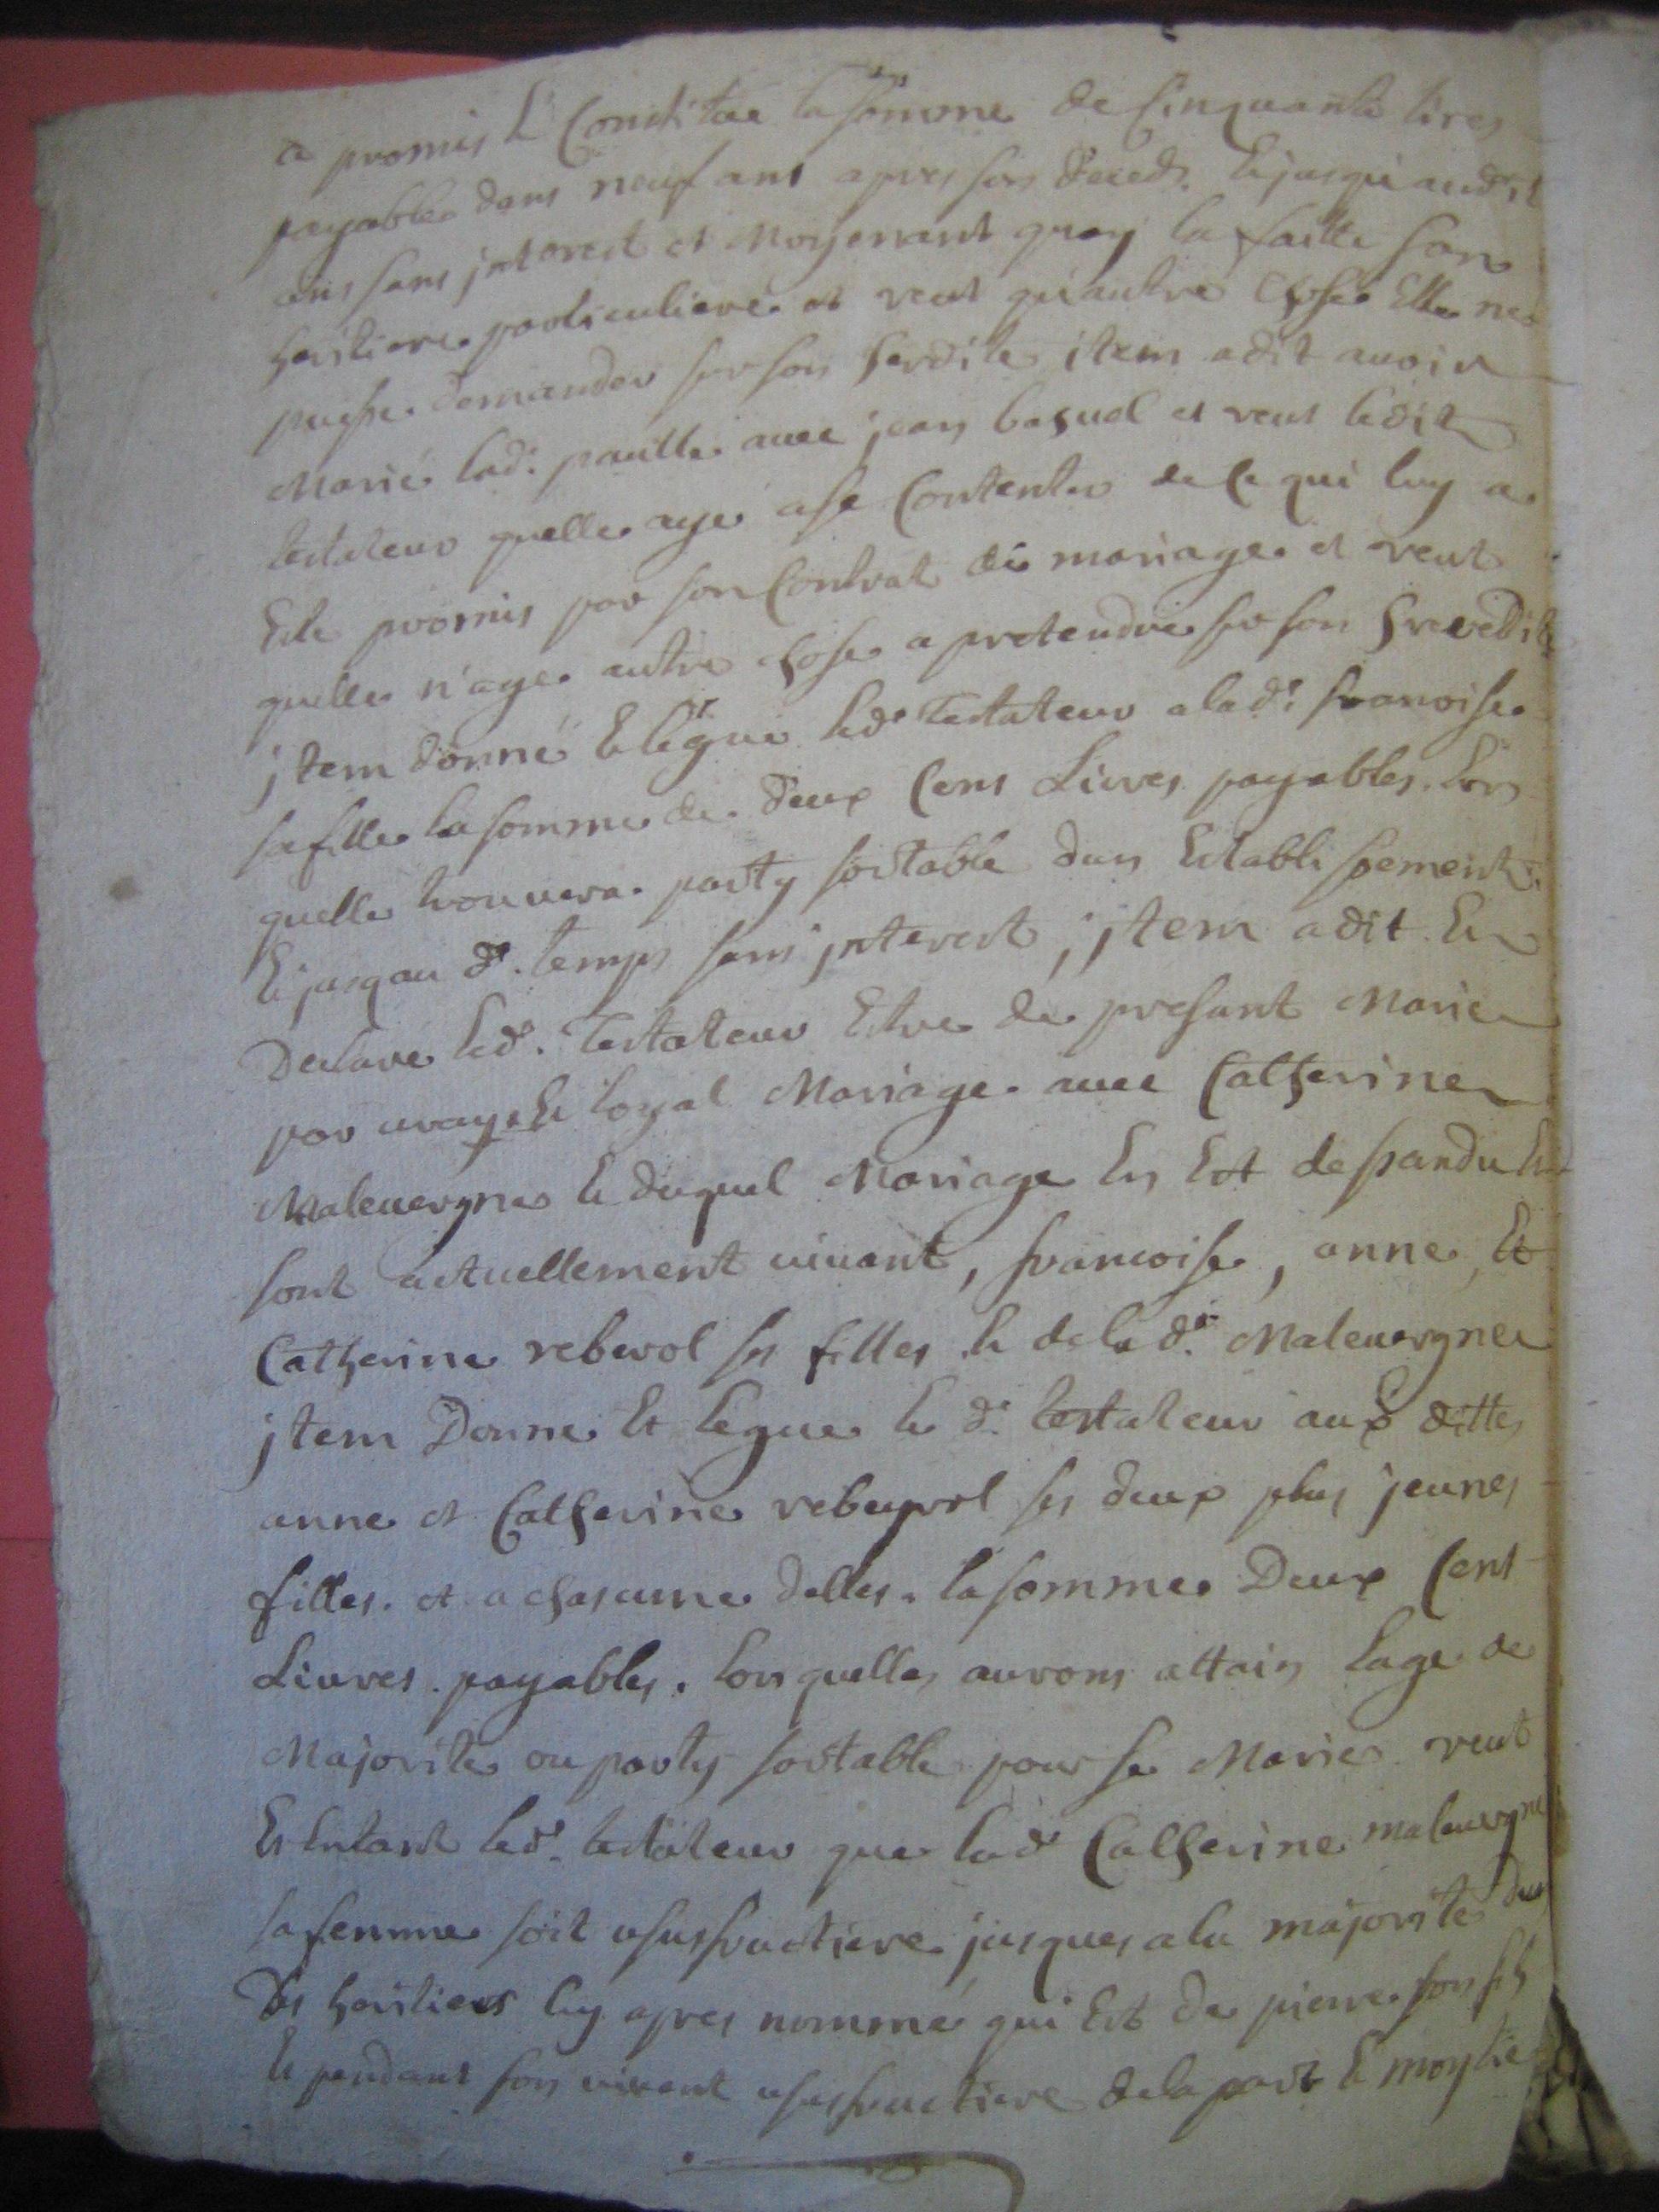 a promis & Constitué la somme de Cinquante livres
payable dans neuf ans apres son deceds & jusqu'aud. t
sans jnterest et Moyenant quoy la faitte son
heritiere particuliere et veut qu'autre chose Elle ne
puisse demander sur son heredite item a dit avoir
Marié lad. paulle avec jean et veut ledit
testateur quelle aye a se Contenter de Ce qui luy a
Esté promis par son Contrat de mariage et veut
quelle n'aye autre chose a pretendre sur son heredite
jtem donné & legué led. testateur a lad. francoise
sa fille la somme de deux Cens Livres payables lors
quelle trouvera party sortable dun Establissement
& jusqau d. temps sans jnterest, jtem a dit &
Declaré led. Testateur Estre de presant Marié
par vray & loyal Mariage avec Catherine
Malevergne & duquel Mariage En Est dessandu &
sont actuellement vivant, francoise, anne, Et
Catherine reberol ses filles & de la d. Malevergne
jtem Donne Et legue le d. testateur aux dittes
anne et Catherine rebeyrol ses deux plus jeunes
filles et a chascune delles la somme Deux Cent
Livres payables lors quelles aurons attain lage de
Majorité ou party sortable pour se Marie veut
& Entant led. testateur que lad. Catherine malevergne
sa femme soit ususfructiere jusques a la majorité
des heritiers cy apres nommé qui Est de pierre son fils
& pendant son vivant ususfructiere de la part & moytie